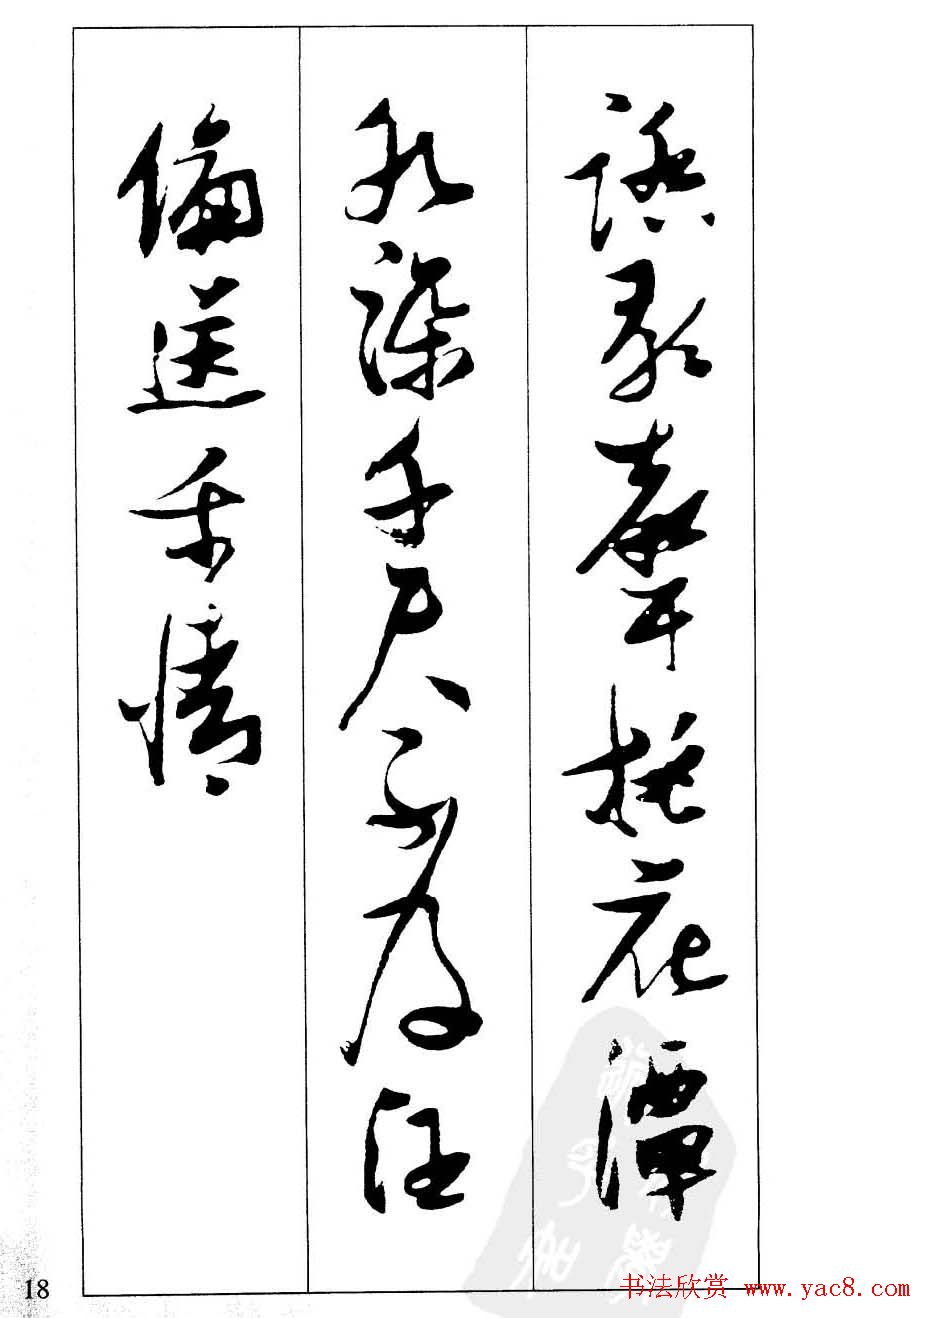 踏歌聲桃花潭
水深千尺不及汪
倫送我情
18
书法欣赏 www.yac8.com